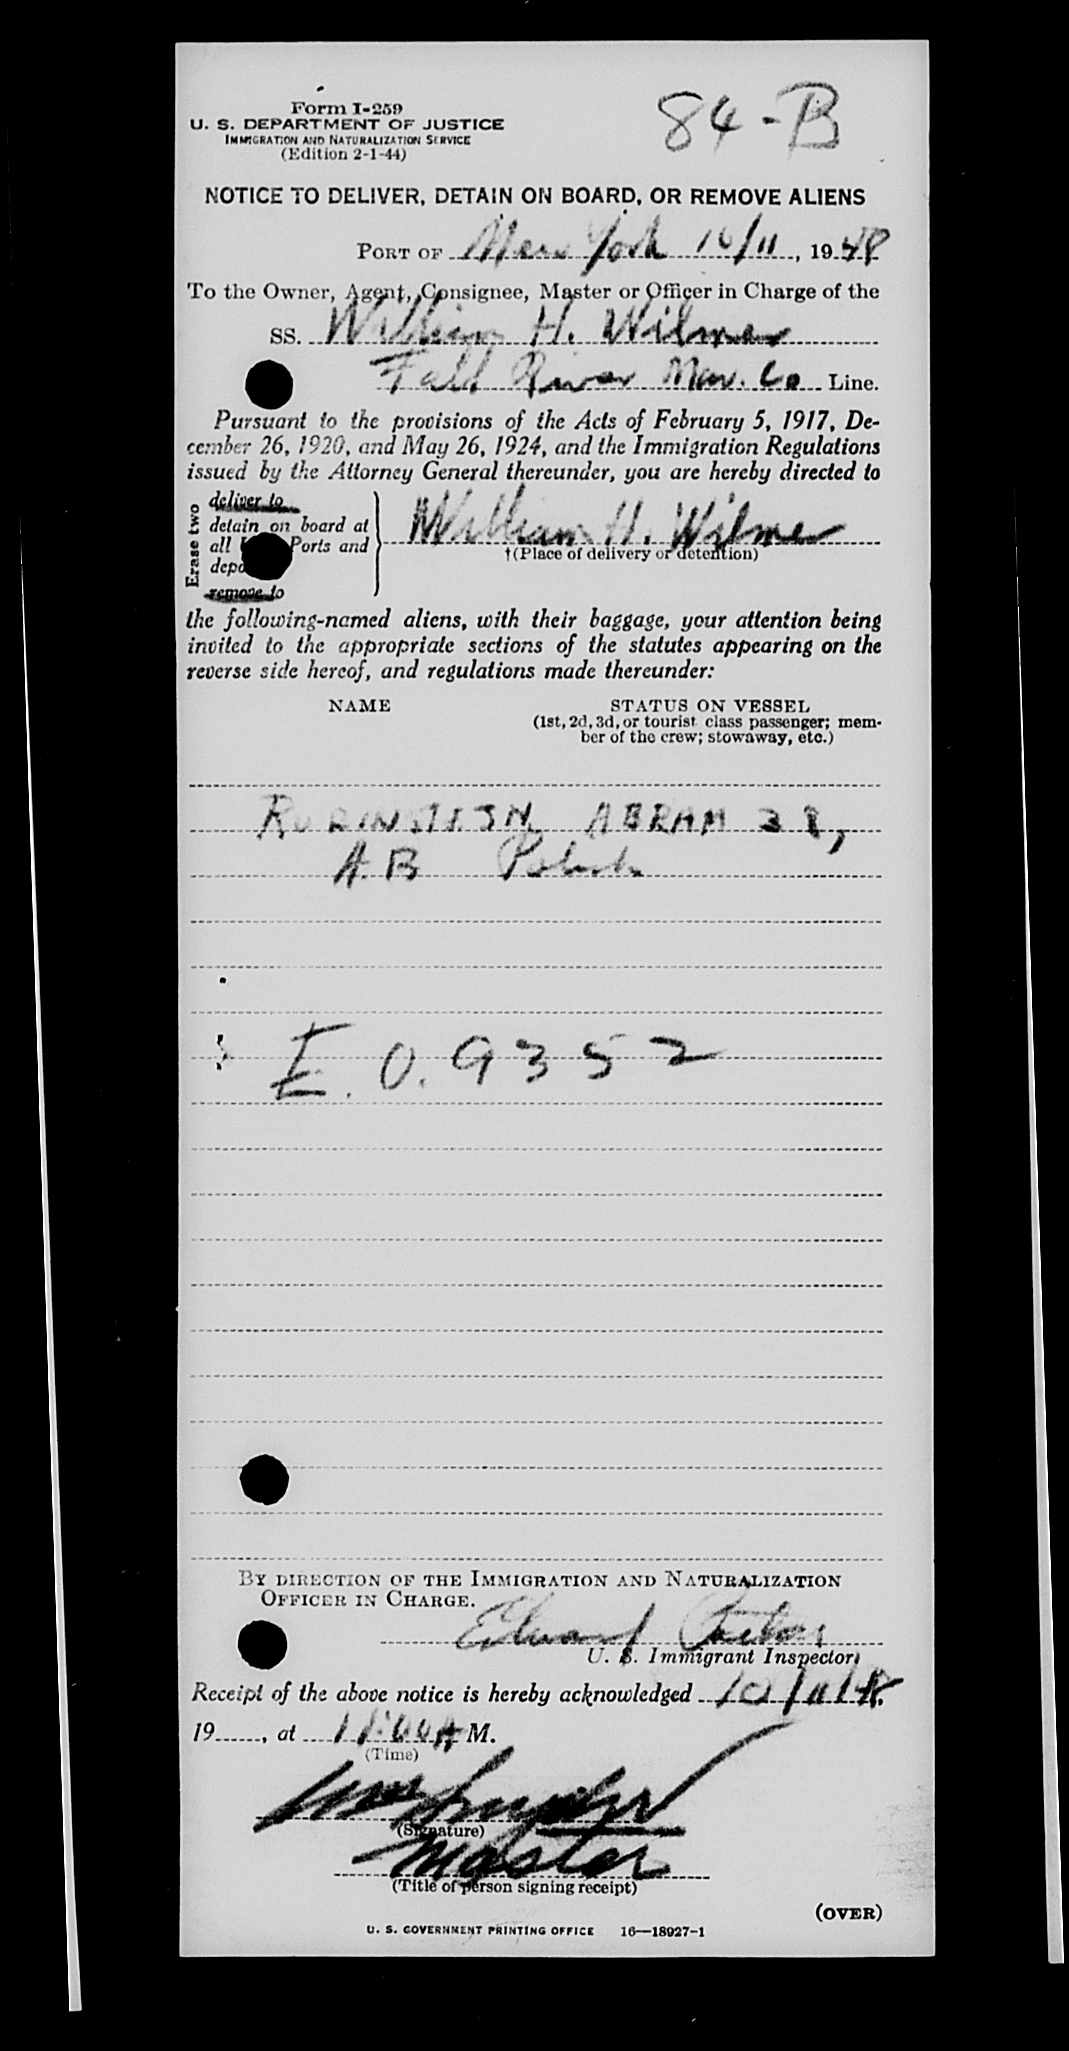 Form I-259
U. S. DEPARTMENT OF JUSTICE
IMMIGRATION AND NATURALIZATION SERVICE
(Edition 2-1-44)
84-B
NOTICE TO DELIVER, DETAIN ON BOARD, OR REMOVE ALIENS
PORT OF New York 10/11, 1948
To the Owner, Agent, Consignee, Master or Officer in Charge of the
SS. William H. Wilmer
Fall River Nav. Co Line.
Pursuant to the provisions of the Acts of February 5, 1917, De-
cember 26, 1920, and May 26, 1924, and the Immigration Regulations
issued by the Attorney General thereunder, you are hereby directed to
Erase two
deliver to
detain on board at
all Ports and
remove to
William H. Wilmer
†(Place of delivery or detention)
the following-named aliens, with their baggage, your attention being
invited to the appropriate sections of the statutes appearing on the
reverse side hereof, and regulations made thereunder:
NAME STATUS ON VESSEL
(1st, 2d, 3d, or tourist class passenger; mem-
ber of the crew; stowaway, etc.)
ABRAM 38,
A.B Polish
E.O. 9352
BY DIRECTION OF THE IMMIGRATION AND NATURALIZATION
OFFICER IN CHARGE.
Edward
U. S. Immigrant Inspector
Receipt of the above notice is hereby acknowledged 10/11/48
19......, at 11:00A M.
(Time)
(Signature)
Master
(Title of person signing receipt)
(OVER)
U. S. GOVERNMENT PRINTING OFFICE 16—18927-1